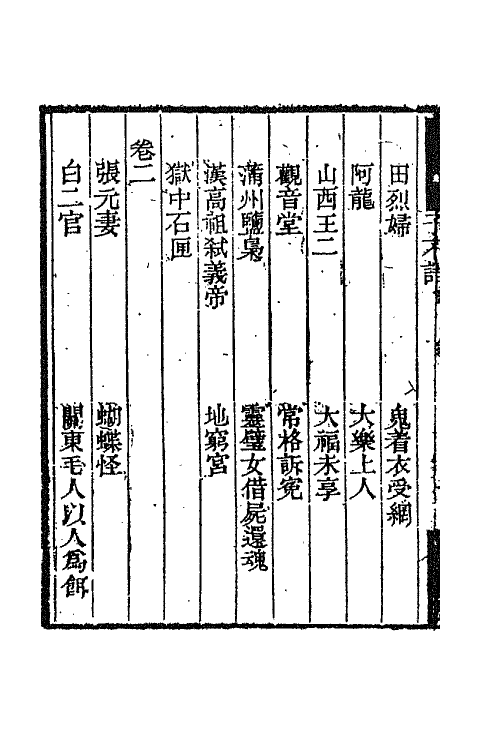 田烈婦　鬼着衣受網
阿龍　大樂上人
山西王二　大福未享
觀音堂　常格訴冤
蒲州鹽梟　靈璧女借屍還魂
漢高祖弒義帝　地窮宮
獄中石匣
卷二
張元妻　蝴蝶怪
白二官　關東毛人以人為餌